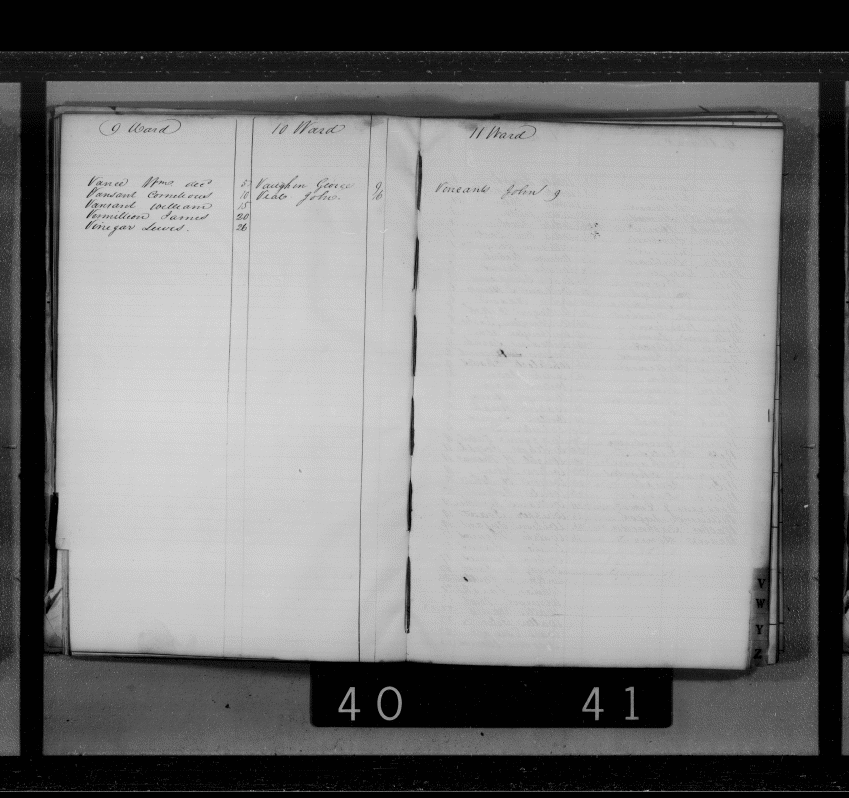 9 Ward
Vance Wm dec 5
Vansant Cornelious 10
Vansant William 15
Vermillion James 20
Vinegar Lewis. 26
10 Ward
Vaughn George 9
John 16
11 Ward
John 9
V
W
Y
Z
40 41